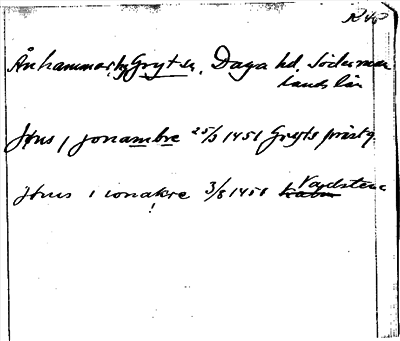 Ånhammar, Gryt sn, Daga hd, Söderman
lands län
Jøns j jonambre 25/3 1451 Gryts prästg.
Jøns i ionakre 3/8 1458 Vadstena